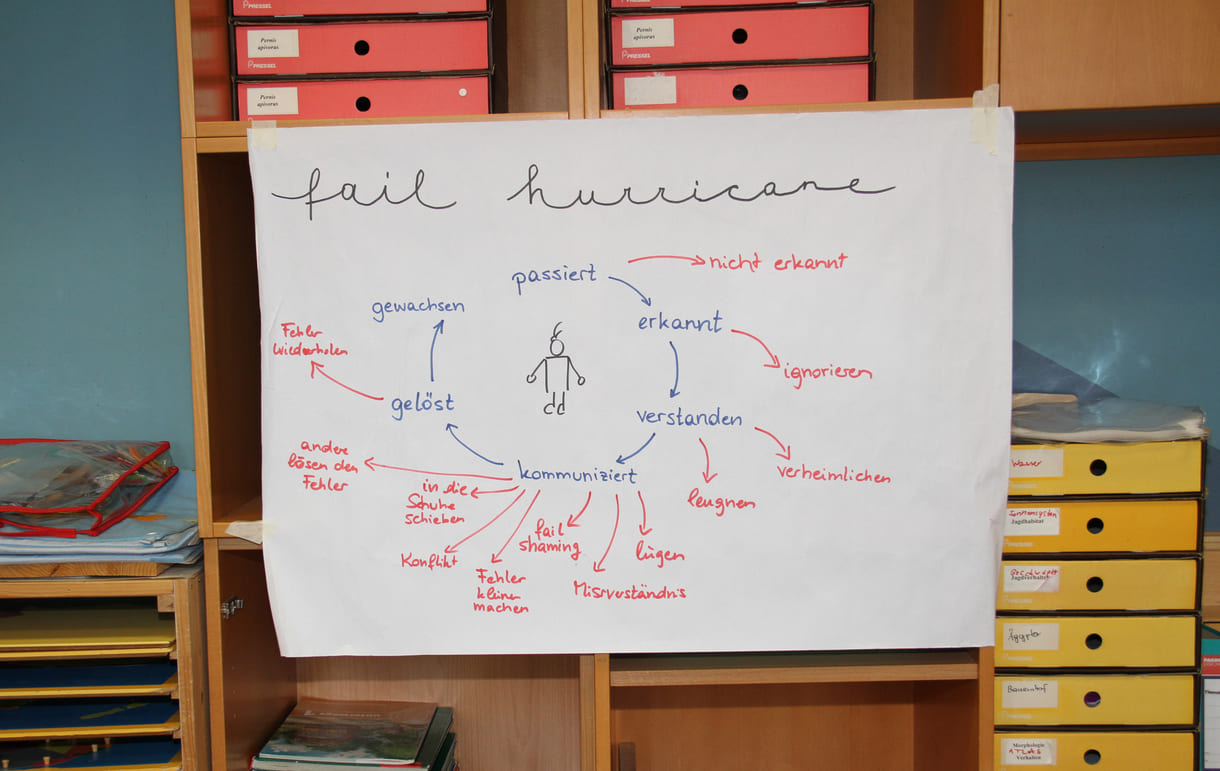 PRESSEL
Pernis
apivorus
PRESSEL
Pernis
apivorus
PRESSEL
Pernis
apivorus
PRESSEL
PRESSEL
fail hurricane
passiert
nicht erkannt
gewachsen
erkannt
Fehler
wiederholen
ignorieren
gelöst
verstanden
andere
lösen den
Fehler
kommuniziert
verheimlichen
in die
Schuhe
schieben
leugnen
fail
shaming
lügen
Konflikt
Fehler
kleiner
machen
Missverständnis
Jagdhabitat
Jagdverhalten
Ägypten
Bauernhof
Morphologie
ATLAS
Verhalten